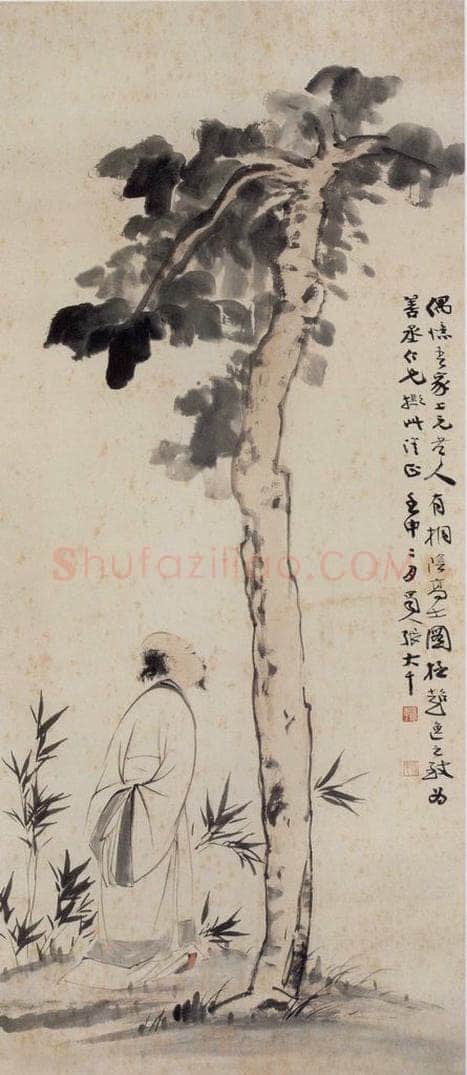 偶憶吾家上元老人有桐陰高士圖極之致為
善丞仁兄擬此請正 壬申二月蜀人張大千
Shufaziliao.COM